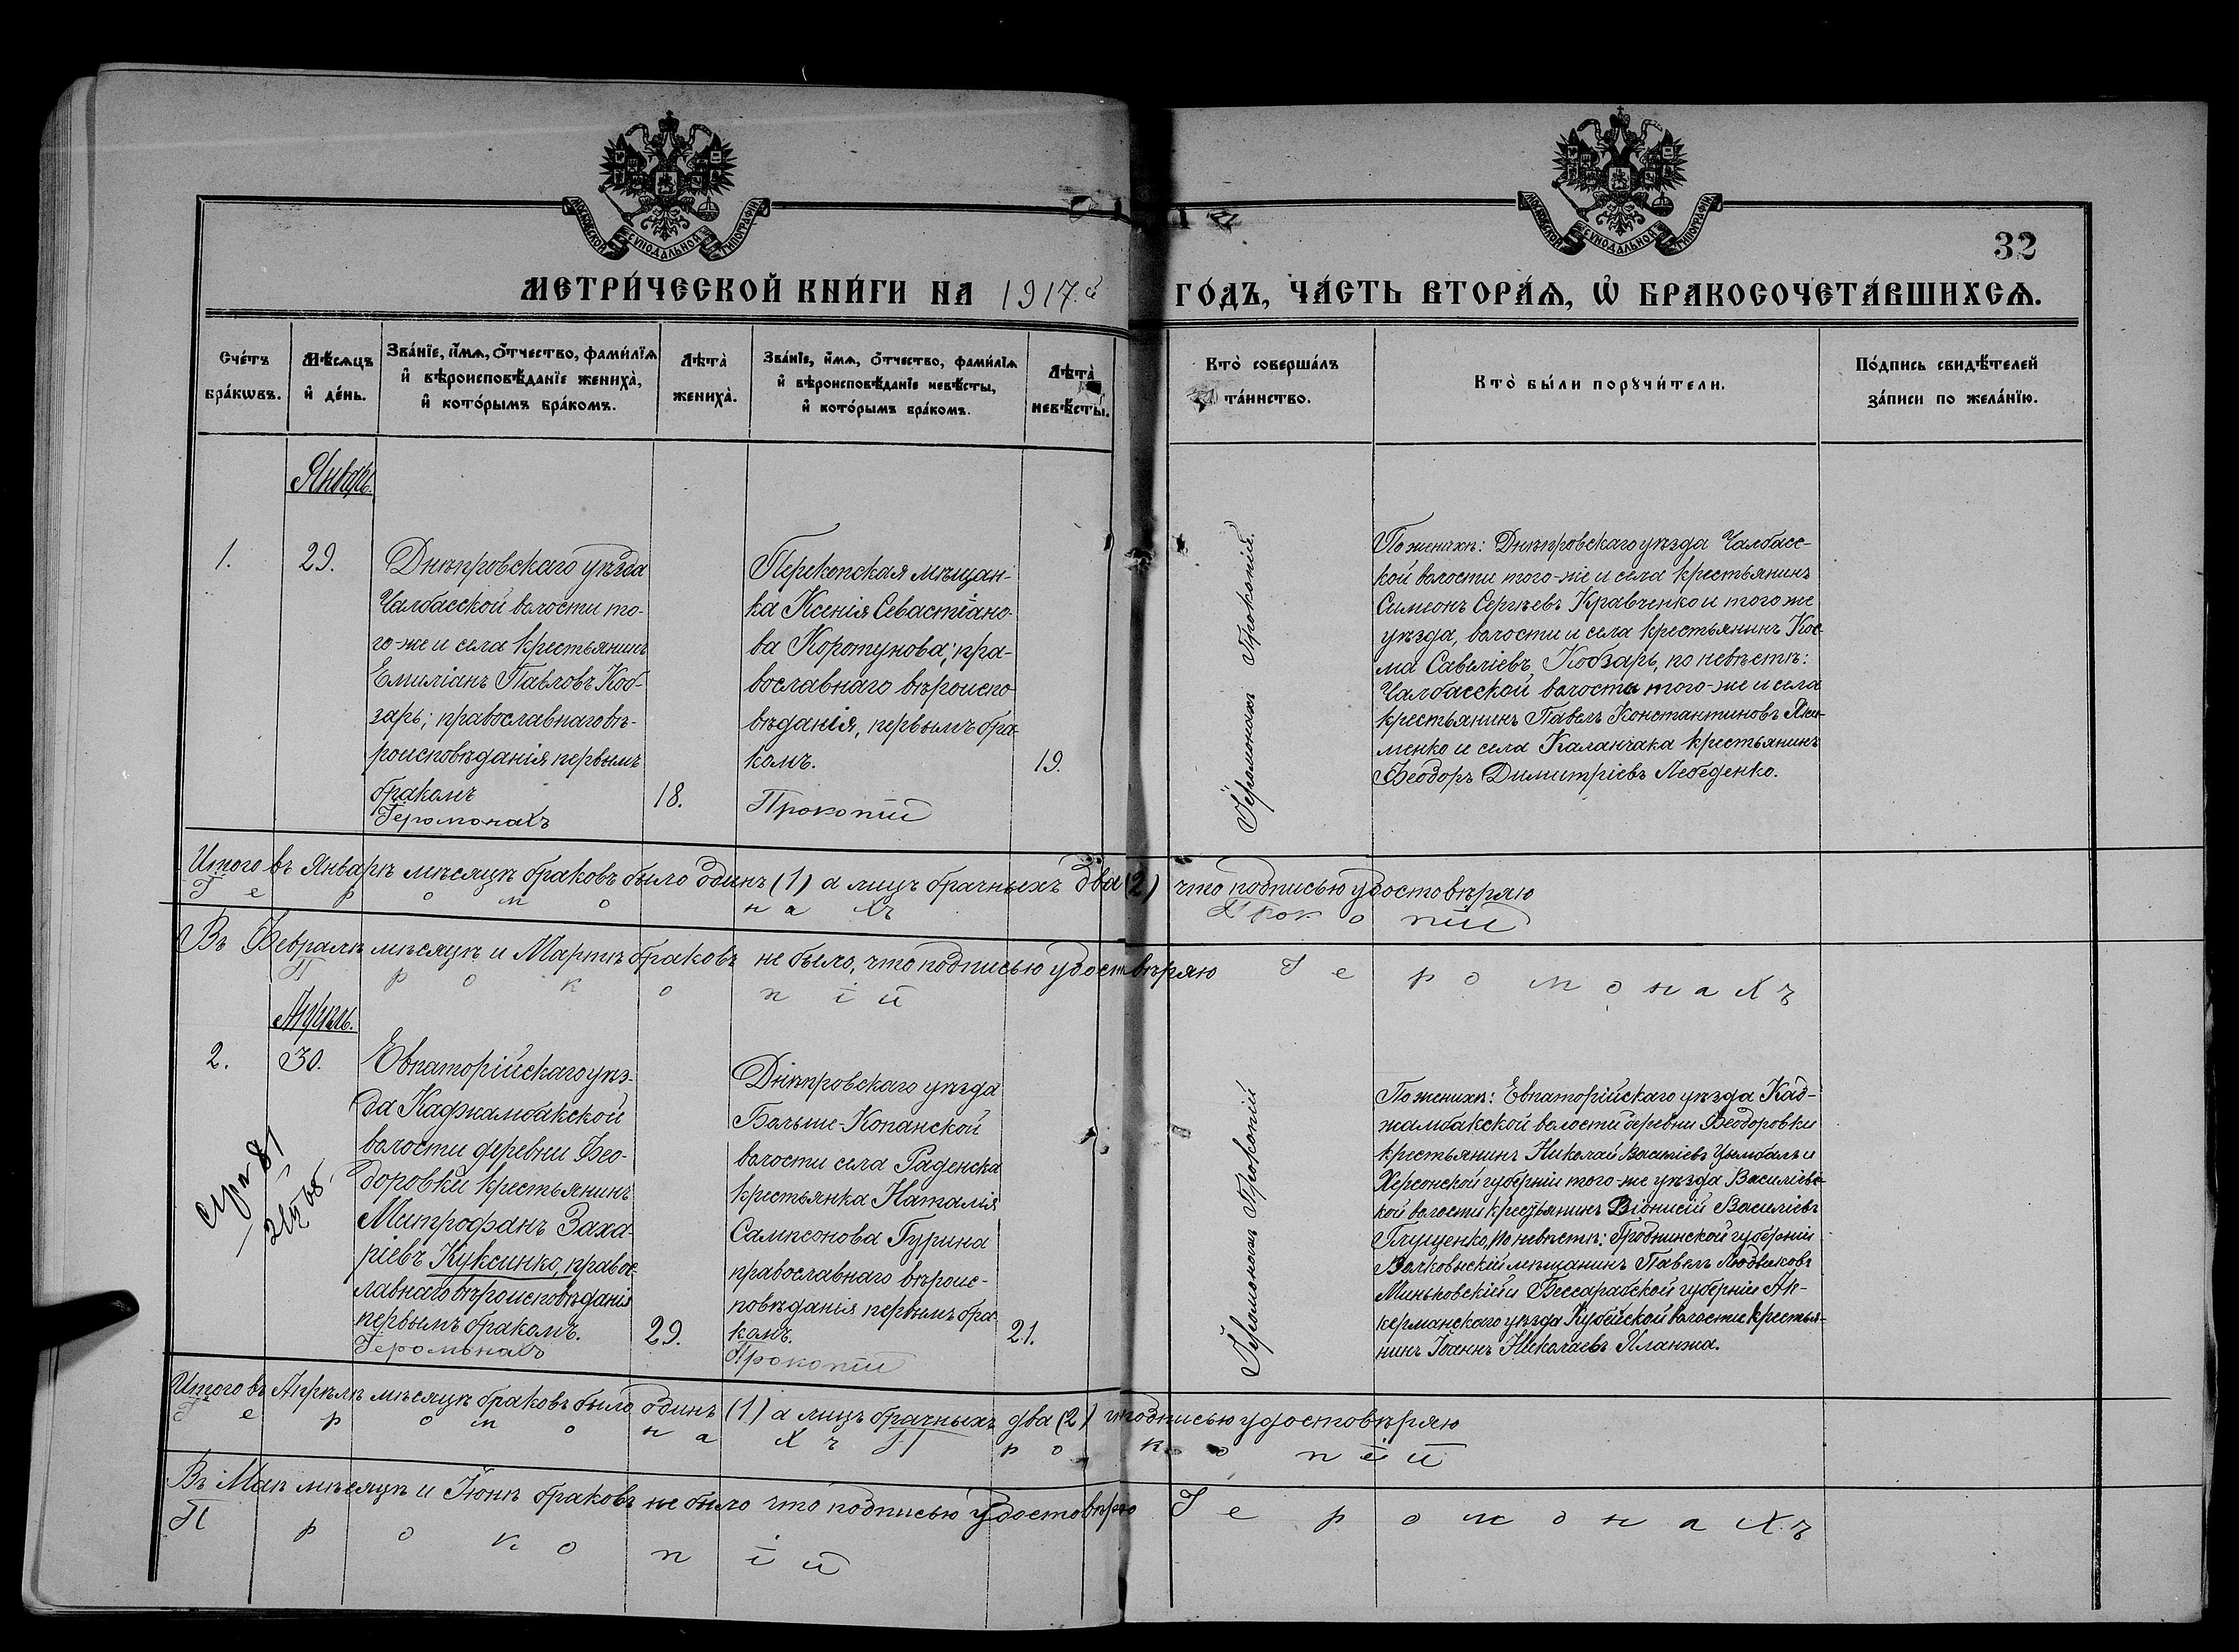 МОСКОВСКОЙ СѴНОДАЛЬНОЙ ТИПОГРАФІИ
МОСКОВСКОЙ СѴНОДАЛЬНОЙ ТИПОГРАФІИ
32
МЕТРИ́ЧЕСКОЙ КНИ́ГИ НА 1917.й ГО́ДЪ, ЧА́СТЬ ВТОРА́Ѧ, Ѡ БРАКОСОЧЕТА́ВШИХСѦ.
Сче́тъ
бра́кѡвъ.
Мѣ́сѧцъ
и҆ де́нь.
Зва́нїе, и҆́мѧ, ѻ҆́тчество, фами́лїѧ
и҆ вѣроисповѣ́данїе жениха̀,
и҆ кото́рымъ бра́комъ.
Лѣта̀
жениха̀.
Зва́нїе, и҆́мѧ, ѻ҆́тчество, фами́лїѧ
и҆ вѣроисповѣ́данїе невѣ́сты,
и҆ кото́рымъ бра́комъ.
Лѣта̀
невѣ́сты.
Кто̀ соверша́лъ
та́инство.
Кто̀ бы́ли порꙋчи́тели.
По́дпись свидѣ́телей
за́писи по жела́нїю.
Январь.
1.
29.
Днѣпровскаго уѣзда
Чалбасской волости то-
го-же и села крестьянинъ
Емиліанъ Павловъ Коб-
зарь; православнаго вѣ-
роисповѣданія первымъ
бракомъ
Іеромонахъ
18.
Перекопская мѣщан-
ка Ксенія Севастіано-
ва Коротунова; пра-
вославнаго вѣроиспо
вѣданія, первымъ бра-
комъ.
Прокопій
19.
Іеромонахъ Прокопій.
По женихѣ: Днѣпровскаго уѣзда Чалбасс-
кой волости того-же и села крестьянинъ
Симеонъ Сергѣевъ Кравченко и того же
уѣзда, волости и села крестьянинъ Кос-
ма Савеліевъ Кобзарь, по невѣстѣ:
Чалбасской волости того-же и села
крестьянинъ Павелъ Константиновъ Яки-
менко и села Каланчака крестьянинъ
Ѳеодоръ Димитріевъ Лебеденко.
Итого въ Январѣ мѣсяцѣ браковъ было одинъ (1) а лицъ брачныхъ два (2) что подписью удостовѣряю
Іеромонахъ Прокопій
Въ Февралѣ мѣсяцѣ и Мартѣ браковъ не было, что подписью удостовѣряю Іеромонахъ
Прокопій
Апрѣль.
2.
30.
стр 81
Евпаторійскаго уѣз-
да Каджамбакской
волости деревни Ѳео-
доровки крестьянинъ
Митрофанъ Заха-
ріевъ Куксинко, правос-
лавнаго вѣроисповѣданія
первымъ бракомъ.
Іеромонахъ
29.
Днѣпровскаго уѣзда
Больше-Копанской
волости села Раденска
крестьянка Наталія
Сампсонова Гурина
православнаго вѣроис-
повѣданія первымъ бра-
комъ.
Прокопій
21.
Іеромонахъ Прокопій
По женихѣ: Евпаторійскаго уѣзда Кад-
жамбакской волости деревни Ѳеодоровки
крестьянинъ Николай Василіевъ Цымбалъ и
Херсонской губерніи того-же уѣзда Василіевс-
кой волости крестьянинъ Діонисій Василіевъ
Глущенко, по невѣстѣ: Гродненской губерніи
Волковыскій мѣщанинъ Павелъ Людвиковъ
Миньковскій и Бессарабской губерніи Ак-
керманскаго уѣзда Кубейской волости крестья-
нинъ Іоаннъ Николаевъ Планжа.
Итого въ Апрѣлѣ мѣсяцѣ браковъ было одинъ (1) а лицъ брачныхъ два (2) что подписью удостовѣряю
Іеромонахъ Прокопій
Въ Маѣ мѣсяцѣ и Іюнѣ браковъ не было что подписью удостовѣрю Іеромонахъ
Прокопій